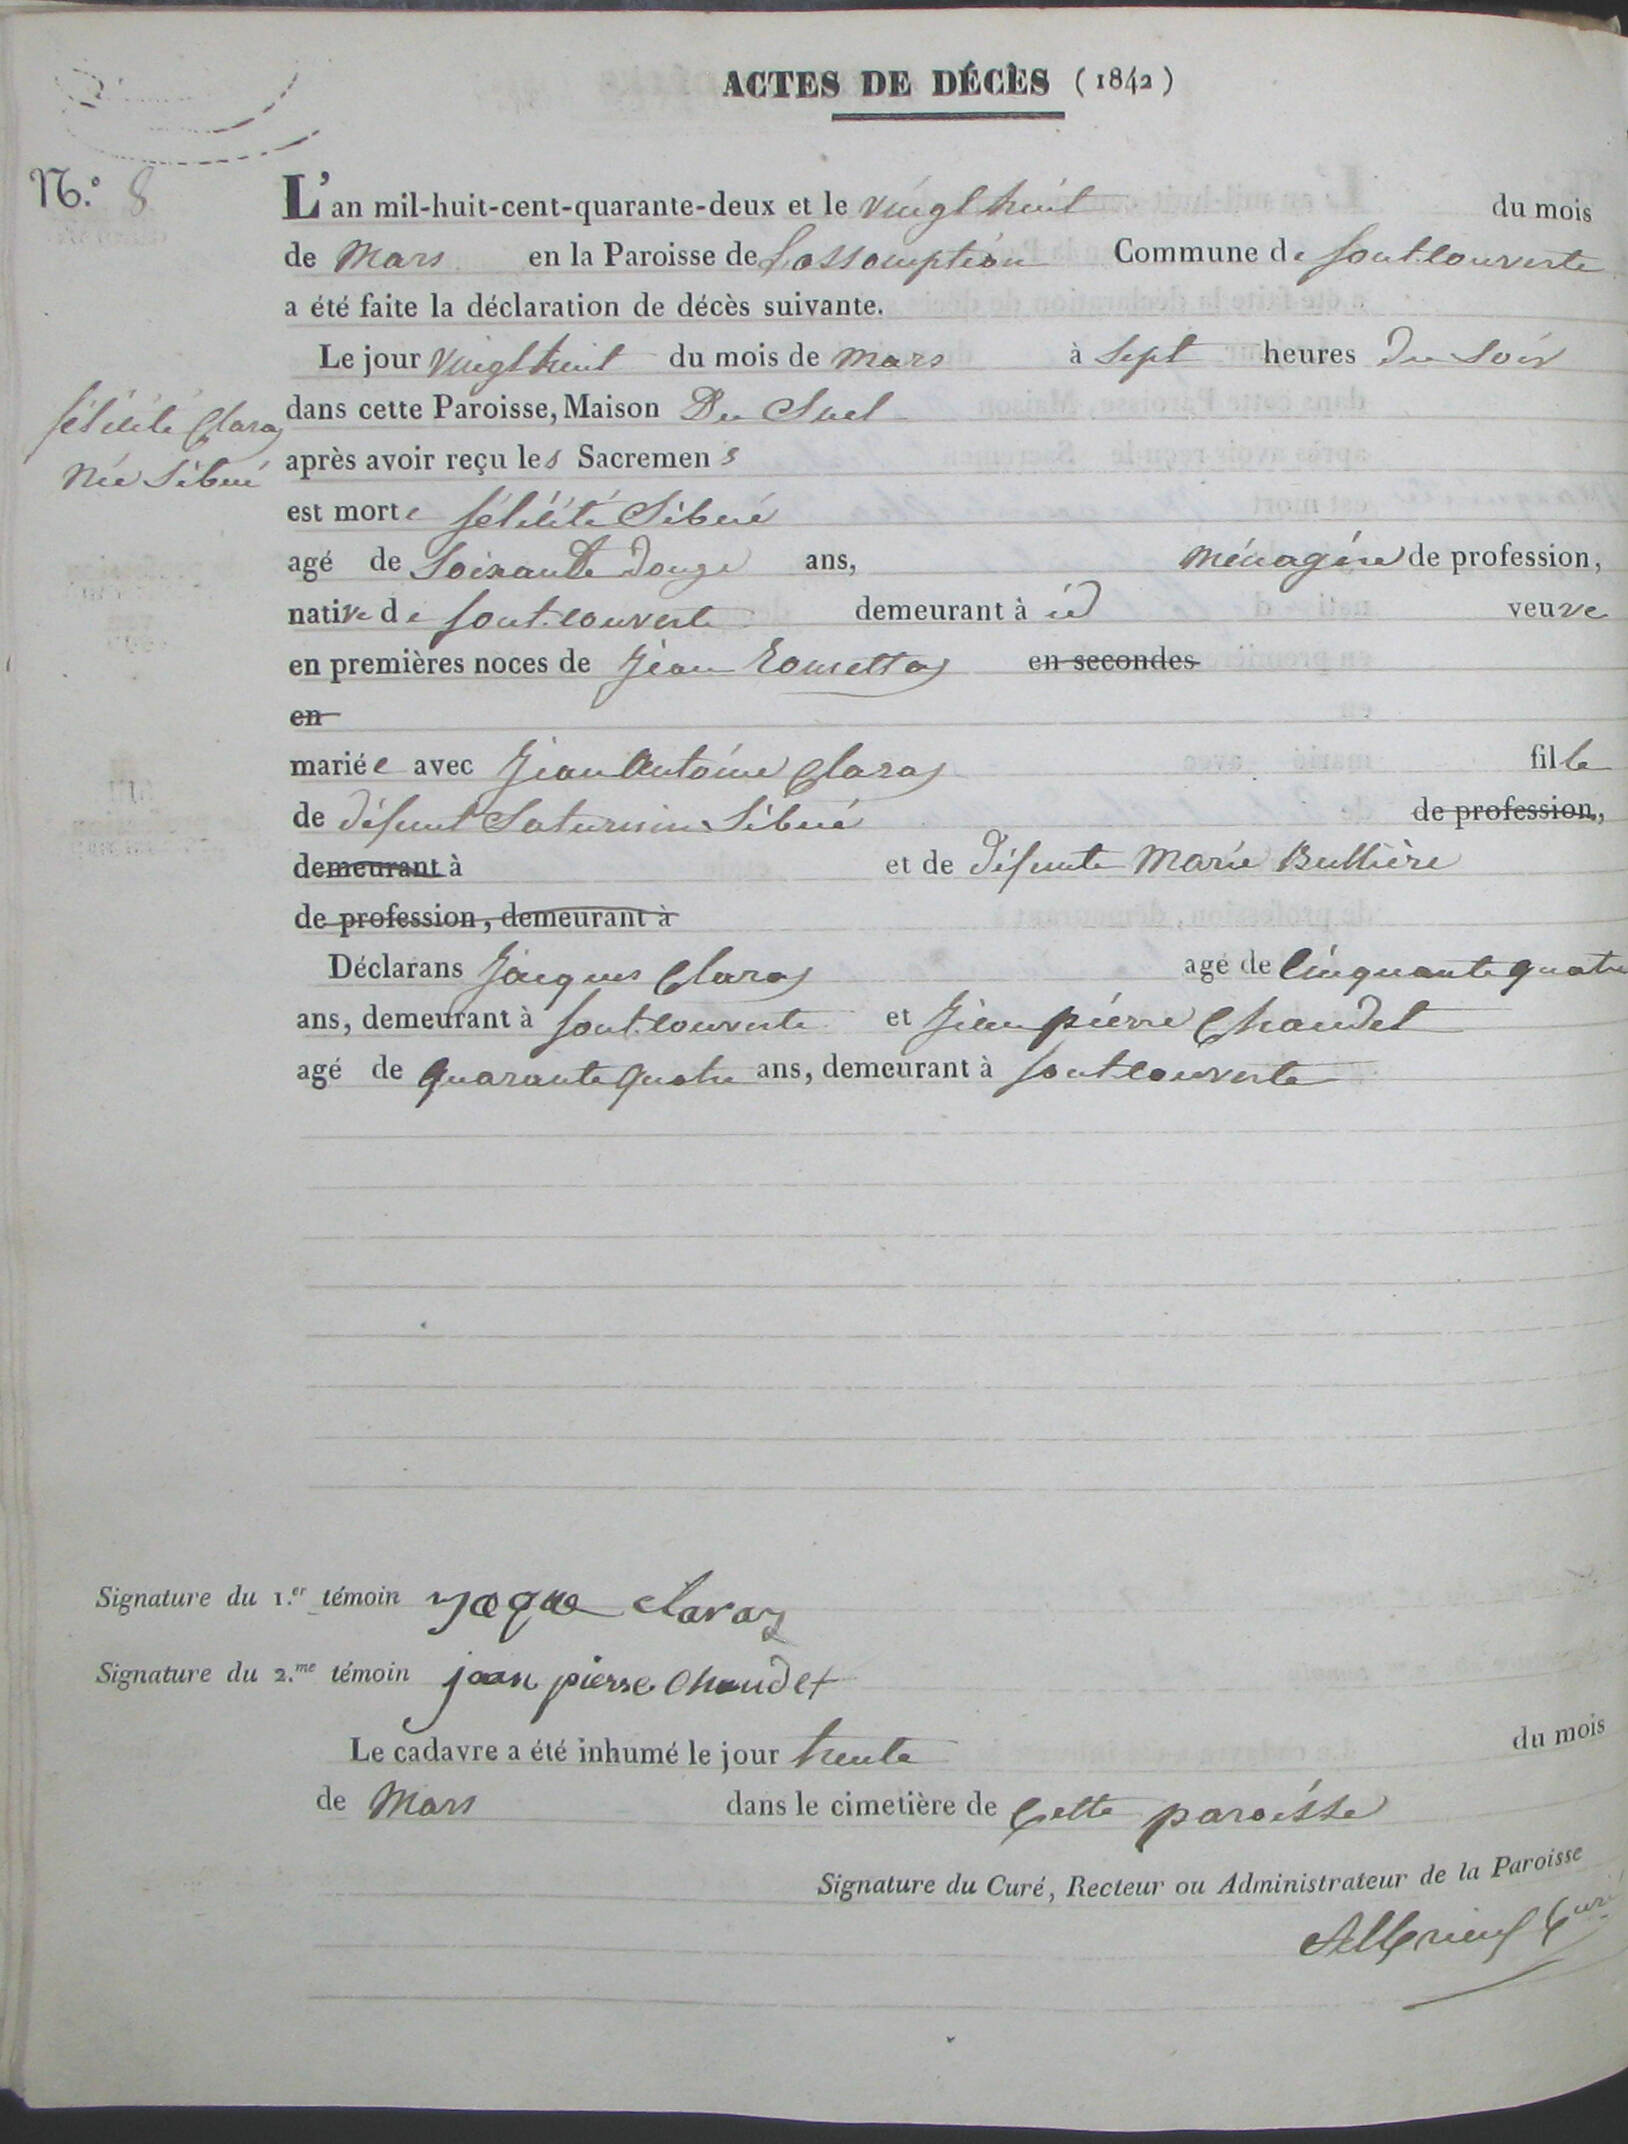 ACTES DE DÉCÈS (1842)
N.º 8
L'an mil-huit-cent-quarante-deux et le vingt huit du mois
de Mars en la Paroisse de Lassomption Commune de font-couverte
a été faite la déclaration de décès suivante.
Le jour vingt huit du mois de mars à Sept heures Du Soir
félicité Claraz
née Sibué
dans cette Paroisse, Maison Du Suel
après avoir reçu les Sacremens
est morte félicité Sibué
agé de Soixante Douze ans, Ménagère de profession,
native de font-couverte demeurant à id veuve
en premières noces de Jean Romettaz en secondes
en
mariée avec Jean Antoine Claraz fille
de défunt Saturnin Sibué de profession,
demeurant à et de défunte Marie Bullière
de profession, demeurant à
Déclarans Jacques Claraz agé de Cinquante quatre
ans, demeurant à font-couverte et Jean pierre Chaudet
agé de quarante quatre ans, demeurant à font-couverte
Signature du 1.er témoin jacque claraz
Signature du 2.me témoin jean pierre chaudet
Le cadavre a été inhumé le jour trente du mois
de Mars dans le cimetière de Cette paroisse
Signature du Curé, Recteur ou Administrateur de la Paroisse
Curé